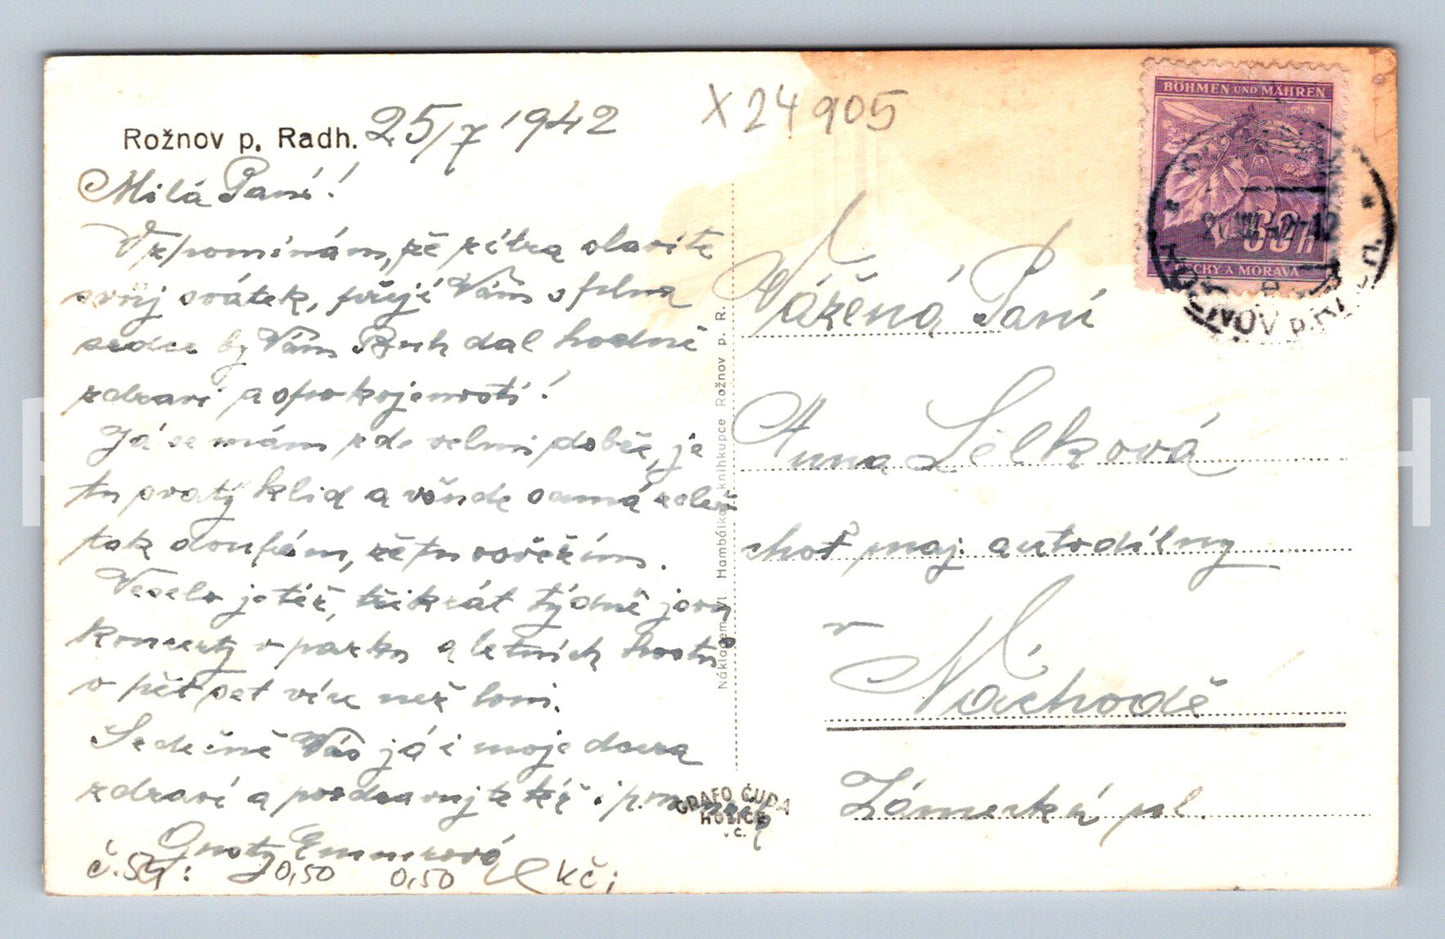 Rožnov p. Radh. 25/7 1942
X24905
Milá Paní!
Vzpomínám, že zítra slavíte
svůj svátek, přeji Vám s plna
srdce by Vám Bůh dal hodně
zdraví a spokojenosti!
Já se mám zde velmi dobře, je
tu zlatý klid a všude samá zeleň
tak doufám, že tu osvěžím.
Veselo je též, třikrát týdně jsou
koncerty v parku a letních hostů
o pět set více než loni.
Srdečně Vás já i moje dcera
zdraví a pozdravujte též i p.
Gusty
č. 59: 0,50 0,50 Kč;
Nákladem vl. Hambálkova knihkupce Rožnov p. R.
GRAFO ČUDA
HOLICE
v Č.
BÖHMEN UND MÄHREN
60 h
ČECHY A MORAVA
Vážená Paní
Anna
choť maj. autodílny
v
Náchodě
Zámecká ul.